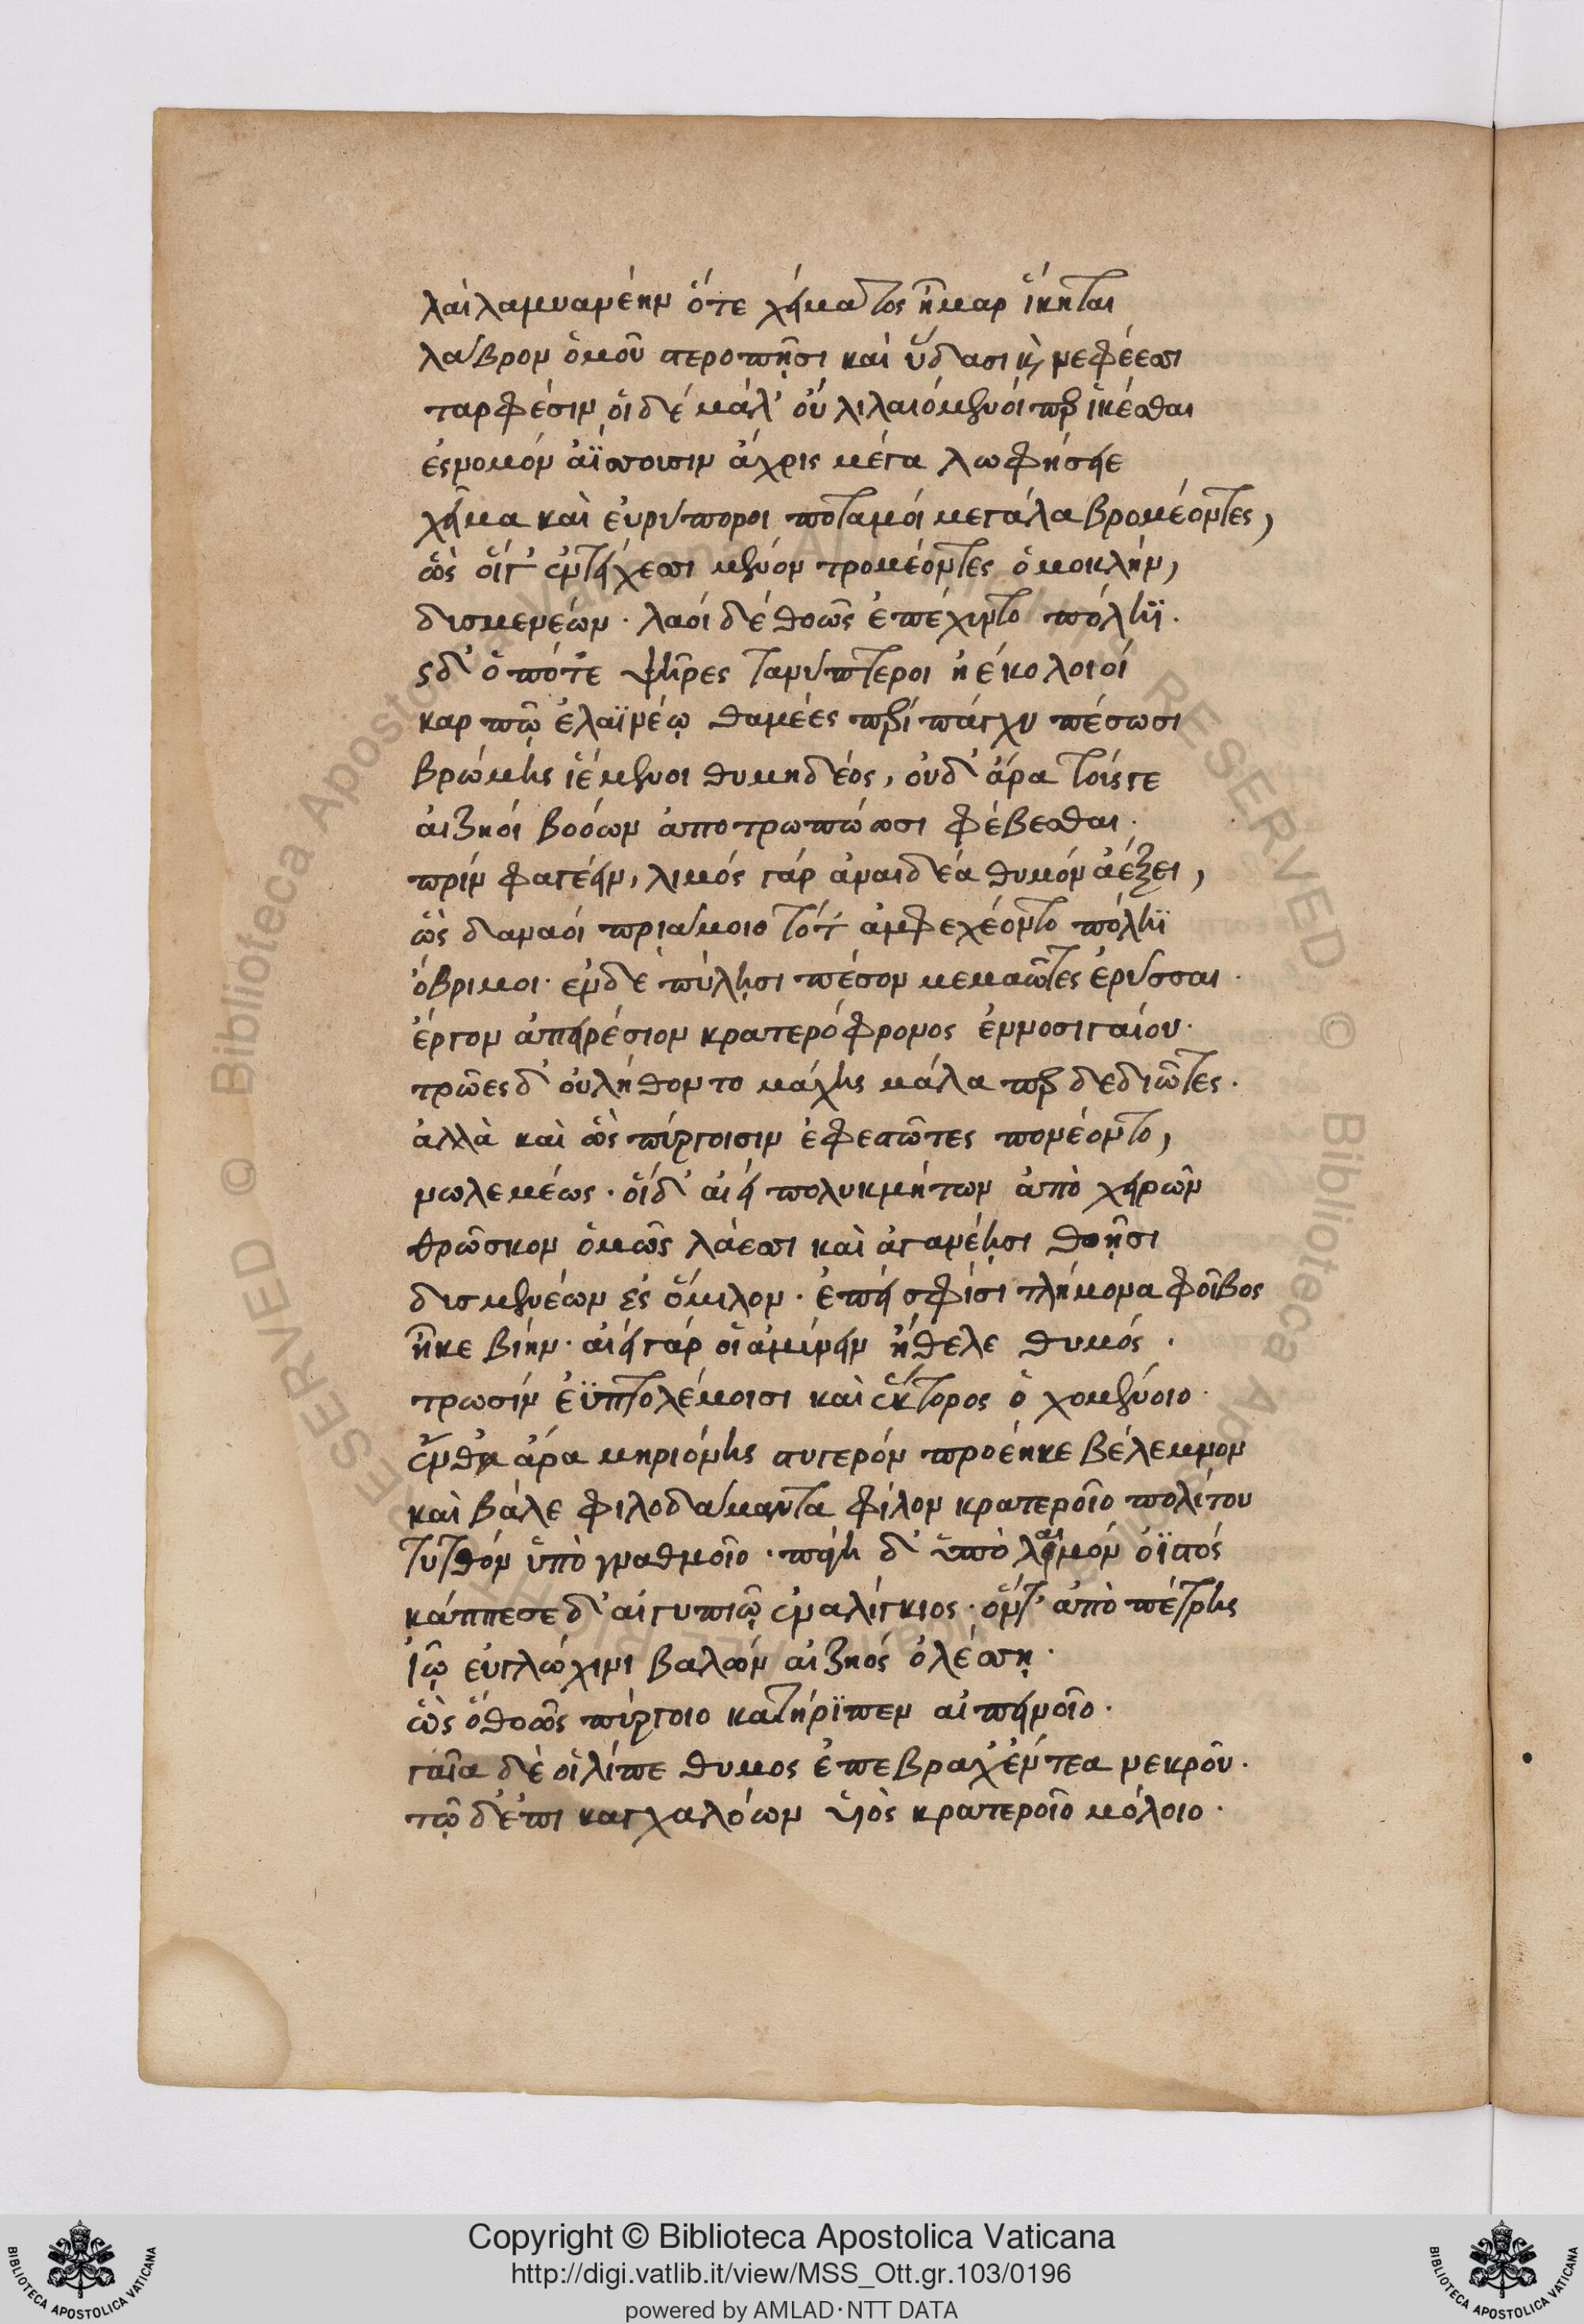 λαίλαπ' αἰναμένην ὅτε χείματος ἦμαρ ἵκηται
λάβρον ὁμοῦ στεροπῇσι καὶ ὕδασι κ νεφέεσσι
ταρφέσιν οἱ δέ μάλ' οὔ λιλαιόμενοί περ ἱκέσθαι
ἐς νομόν ἀΐσσουσιν ἄχρις μέγα λωφήσειε
χεῖμα καὶ εὐρύποροι ποταμοί μεγάλα βρομέοντες,
ὣς οἵγ' ἐν τείχεσσι μένον τρομέοντες ὁμοκλήν,
δυσμενέων. λαοί δέ θοῶς ἐπέχυντο πόληϊ.
ς δ' ὁπότε ψῆρες τανύπτεροι ἠέ κολοιοί
καρπῷ ἐλαϊνέῳ θαμέες περί πάγχυ πέσωσι
βρώμης ἱέμενοι θυμηδέος, οὐδ' ἄρα τοίςγε
αἰζηοί βοόων ἀποτρωπώωσι φέβεσθαι.
πρίν φαγέειν, λιμός γάρ ἀναιδέα θυμόν ἀέξει,
ὣς δαναοί πριάμοιο τότ' ἀμφεχέοντο πόληϊ
ὄβριμοι. ἐν δὲ πύλῃσι πέσον μεμαῶτες ἐρύσσαι.
ἔργον ἀπειρέσιον κρατερόφρονος ἐννοσιγαίου.
τρῶες δ' οὐ λήθοντο μάχης μάλα περ δεδιῶτες.
ἀλλὰ καὶ ὣς πύργοισιν ἐφεστῶτες πονέοντο,
νωλεμέως. οἵδ' αἰεί πολυκμήτων ἀπὸ χειρῶν
θρῶσκον ὁμῶς λάεσσι καὶ ἀγανέῃσι θοῇσι
δυσμενέων ἐς ὅμιλον. ἐπεί σφίσι τλήμονα φοῖβος
ἧκε βίην. αἰεί γάρ οἱ ἀμύνειν ἤθελε θυμός.
τρωσίν ἐϋπτολέμοισι καὶ ἕκτορος ὀχομένοιο.
ἔνθα ἄρα μηριόνης στυγερόν προέηκε βέλεμνον
καὶ βάλε φιλοδάμαντα φίλον κρατεροῖο πολίτου
τυτθόν ὑπὸ γναθμοῖο. πάγη δ' ὑπὸ λαιμόν ὀϊστός
κάππεσε δ' αἰγυπιῷ ἐναλίγκιος. ὅντ' ἀπὸ πέτρης
ἰῷ εὐγλώχινι βαλών αἰζηός ὀλέσσῃ.
ὣς ὅ θοῶς πύργοιο κατήριπεν αἰπεινοῖο.
γυῖα δὲ οἱ λίπε θυμος ἐπέβραχ' ἔντεα νεκροῦ.
τῷ δ' ἔπι καγχαλόων υἱὸς κρατεροῖο μόλοιο.
Copyright © Biblioteca Apostolica Vaticana
http://digi.vatlib.it/view/MSS_Ott.gr.103/0196
powered by AMLAD·NTT DATA